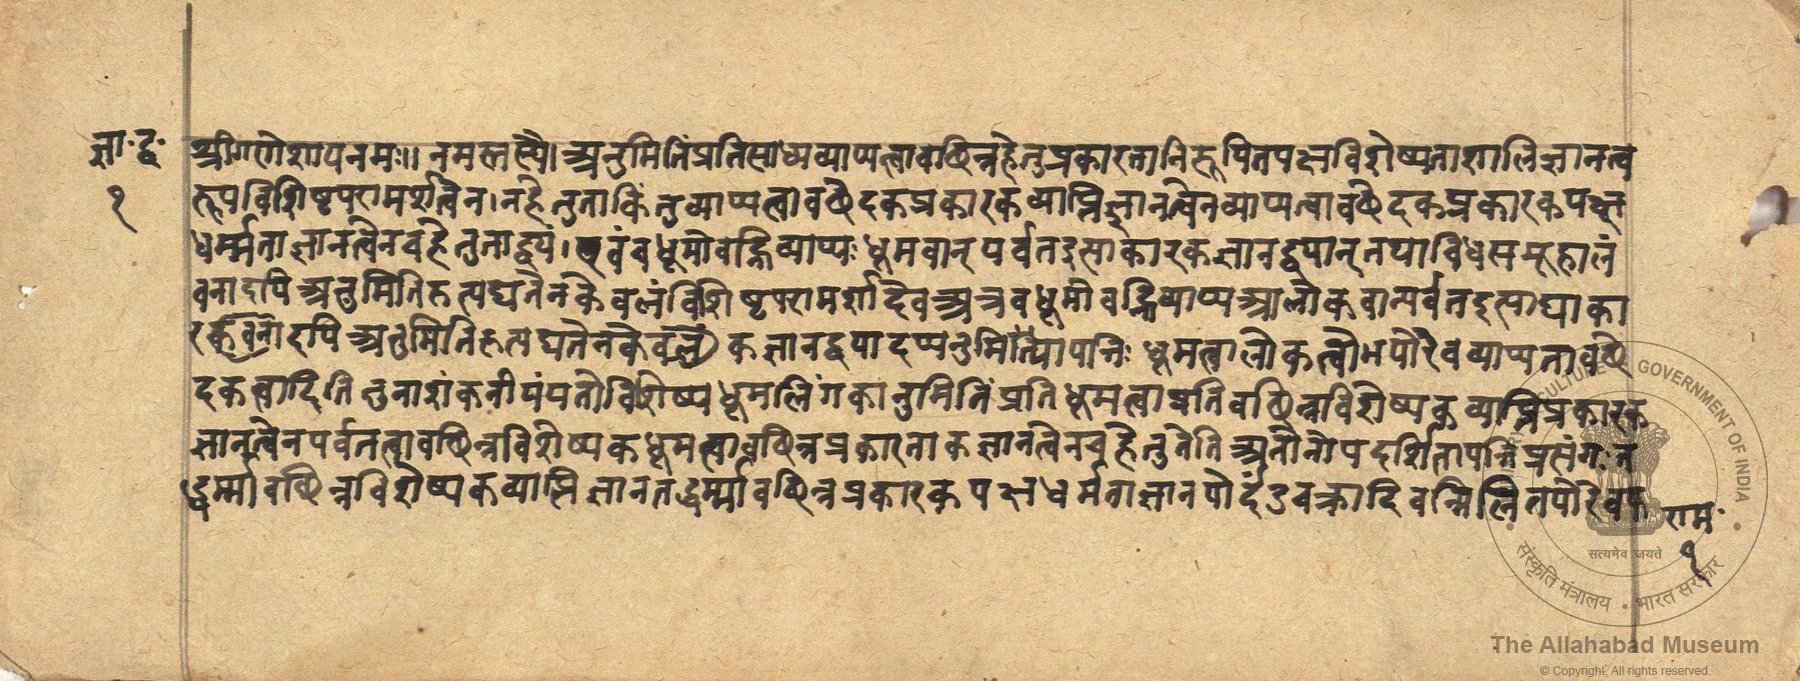 ज्ञा॰द्व॰
१
श्रीगणेशाय नमः॥ नमस्तस्यै। अनुमितिंप्रतिसाध्यव्याप्यत्वावछिन्नहेतुप्रकारतानिरूपितपक्षविशेष्यताशालिज्ञानत्व
रूपविशिष्टपरामर्शत्वेन। नहेतुता किंतु व्याप्यत्वावछेदकप्रकारकव्याप्तिज्ञानत्वेनव्याप्यत्वावछेदकप्रकारकपक्ष
धर्म्मताज्ञानत्वेनचहेतुताद्वयं। एवंचधूमोवह्निव्याप्यः धूमवान् पर्वतइत्याकारकज्ञानद्वयान् तथाविधसमूहालं
बनादपि अनुमितिरुत्पद्यतेनकेवलंविशिष्टपरामर्शादेव अत्रचधूमोवह्निव्याप्यआलोकवान्पर्वतइत्याद्याका
रकबनादपि अनुमितिरुत्पद्यतेनकेवलं कज्ञानद्वयादप्यनुमित्यापत्तिः धूमत्वालोकत्वोभयोरेवव्याप्यतावछे
दकत्वादितितुनाशंकनीयंयतोविशिष्यधूमलिंगकानुमितिंप्रतिधूमत्वाप्रतिवछिन्नविशेष्यकव्याप्तिप्रकारक
ज्ञानत्वेनपर्वतत्वावछिन्नविशेष्यकधूमत्वावछिन्नप्रकारताकज्ञानत्वेनचहेतुतेति अतोनोपदर्शितापत्तिप्रसंगः त
द्धर्म्मावछिन्नविशेष्यकव्याप्तिज्ञानतद्धर्म्मावछिन्नप्रकारकपक्षधर्मताज्ञानयोर्दंडचक्रादिवन्मिलितयोरेवफ
रामः
१
CULTURE
GOVERNMENT OF INDIA
सत्यमेव जयते
संस्कृति मंत्रालय • भारत सरकार
The Allahabad Museum
© Copyright, All rights reserved.